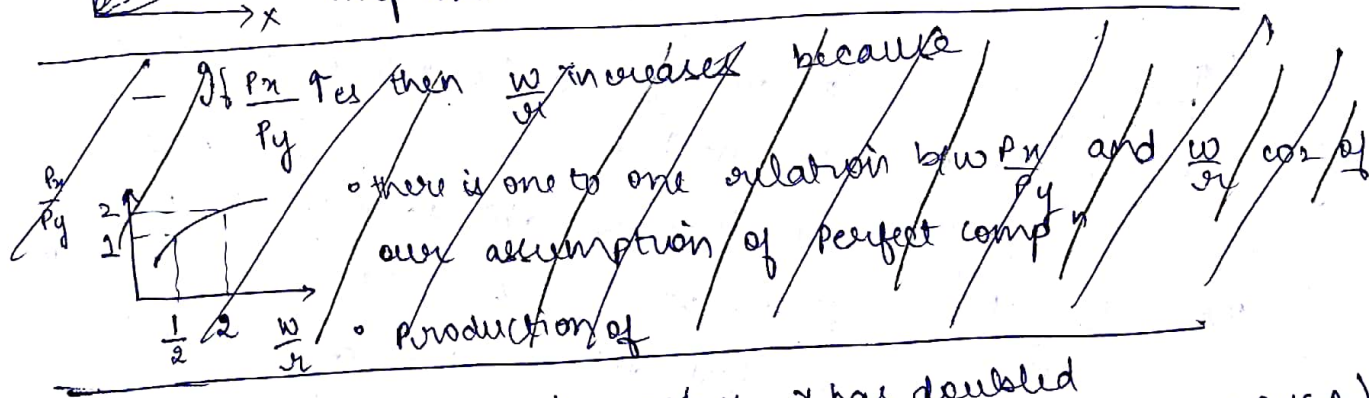 x
— If Px/Py ↑es then w/r increases because
• there is one to one relation b/w Px/Py and w/r coz of
our assumption of perfect compn
Px/Py
2
1
1/2 2 w/r
• Production of
x has doubled